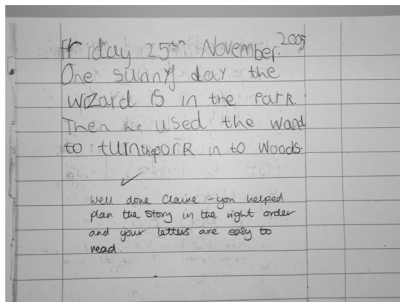 Friday 25th November. 2005
One sunny day the
wizard is in the Park
Then he used the wand
to turn in to woods
well done Claire - you helped
plan the story in the right order
and your letters are easy to
read.